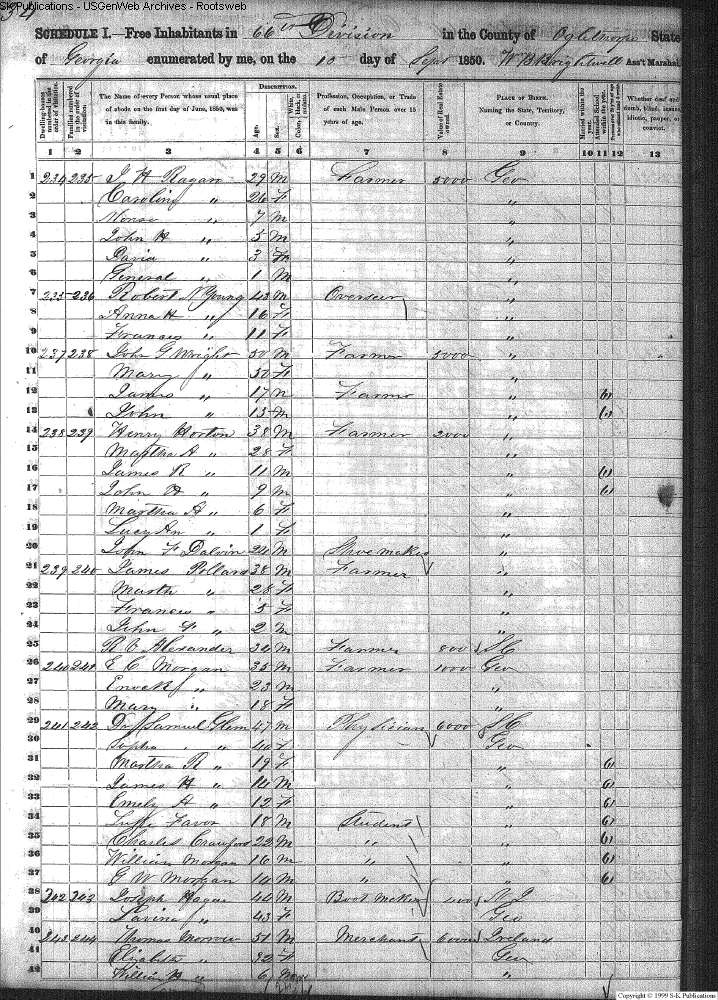 S-K Publications - USGenWeb Archives - Rootsweb
34
SCHEDULE I.—Free Inhabitants in 66th Division in the County of Oglethorpe State
of Georgia enumerated by me, on the 10 day of Sept 1850. W B Brightwell Ass't Marshal.
Dwelling-houses numbered in the order of visitation.
Families numbered in the order of visitation.
The Name of every Person whose usual place of abode on the first day of June, 1850, was in this family.
DESCRIPTION.
Age.
Sex.
White, black, or mulatto.
Color,
Profession, Occupation, or Trade of each Male Person over 15 years of age.
Value of Real Estate owned.
PLACE OF BIRTH. Naming the State, Territory, or Country.
Married within the year.
Attended School within the year.
Whether deaf and dumb, blind, insane, idiotic, pauper, or convict.
1 2 3 4 5 6 7 8 9 10 11 12 13
1 234 235 J H Ragan 29 M Farmer 5000 Geo
2 Caroline " 26 F "
3 " 7 M "
4 John H " 5 M "
5 " 3 "
6 General " 1 M "
7 235 236 Robert N Young 43 M Overseer "
8 Anna H " 16 F "
9 Frances " 11 F "
10 237 238 John G Wright 50 M Farmer 5000 "
11 Mary " 50 F "
12 James " 17 M Farmer " (1)
13 John " 13 M " (1)
14 238 239 Henry Horton 38 M Farmer 2000 "
15 Martha A " 28 F "
16 James R " 11 M " (1)
17 John " 9 M " (1)
18 Martha A " 6 F "
19 Lucy An " 1 F "
20 John F Dalvin 24 M Shoemaker "
21 239 240 James Pellars 38 M Farmer "
22 Marth " 28 F "
23 Frances " 5 F "
24 John F " 2 M "
25 R V Alexander 34 M Farmer 800 SC
26 240 241 E C Morgan 35 M Farmer 1000 Geo
27 " 23 M "
28 Mary " 18 F "
29 241 242 Dr Samuel Glenn 47 M Physician 6000 SC
30 Sopha " 40 F Geo
31 Martha R " 19 F " (1)
32 James H " 14 M " (1)
33 Emely A " 12 F " (1)
34 Favor 18 M Student " (1)
35 Charles Crawford 22 M " " (1)
36 William Morgan 16 M " " (1)
37 G W Morgan 14 M " " (1)
38 242 243 Joseph 44 M Boot maker 400 N J
39 Lavina " 43 F Geo
40 243 244 Thomas 51 M Merchant 6000 Ireland
41 Elizabeth " 32 F Geo
42 William " 6 "
Copyright © 1999 S-K Publications